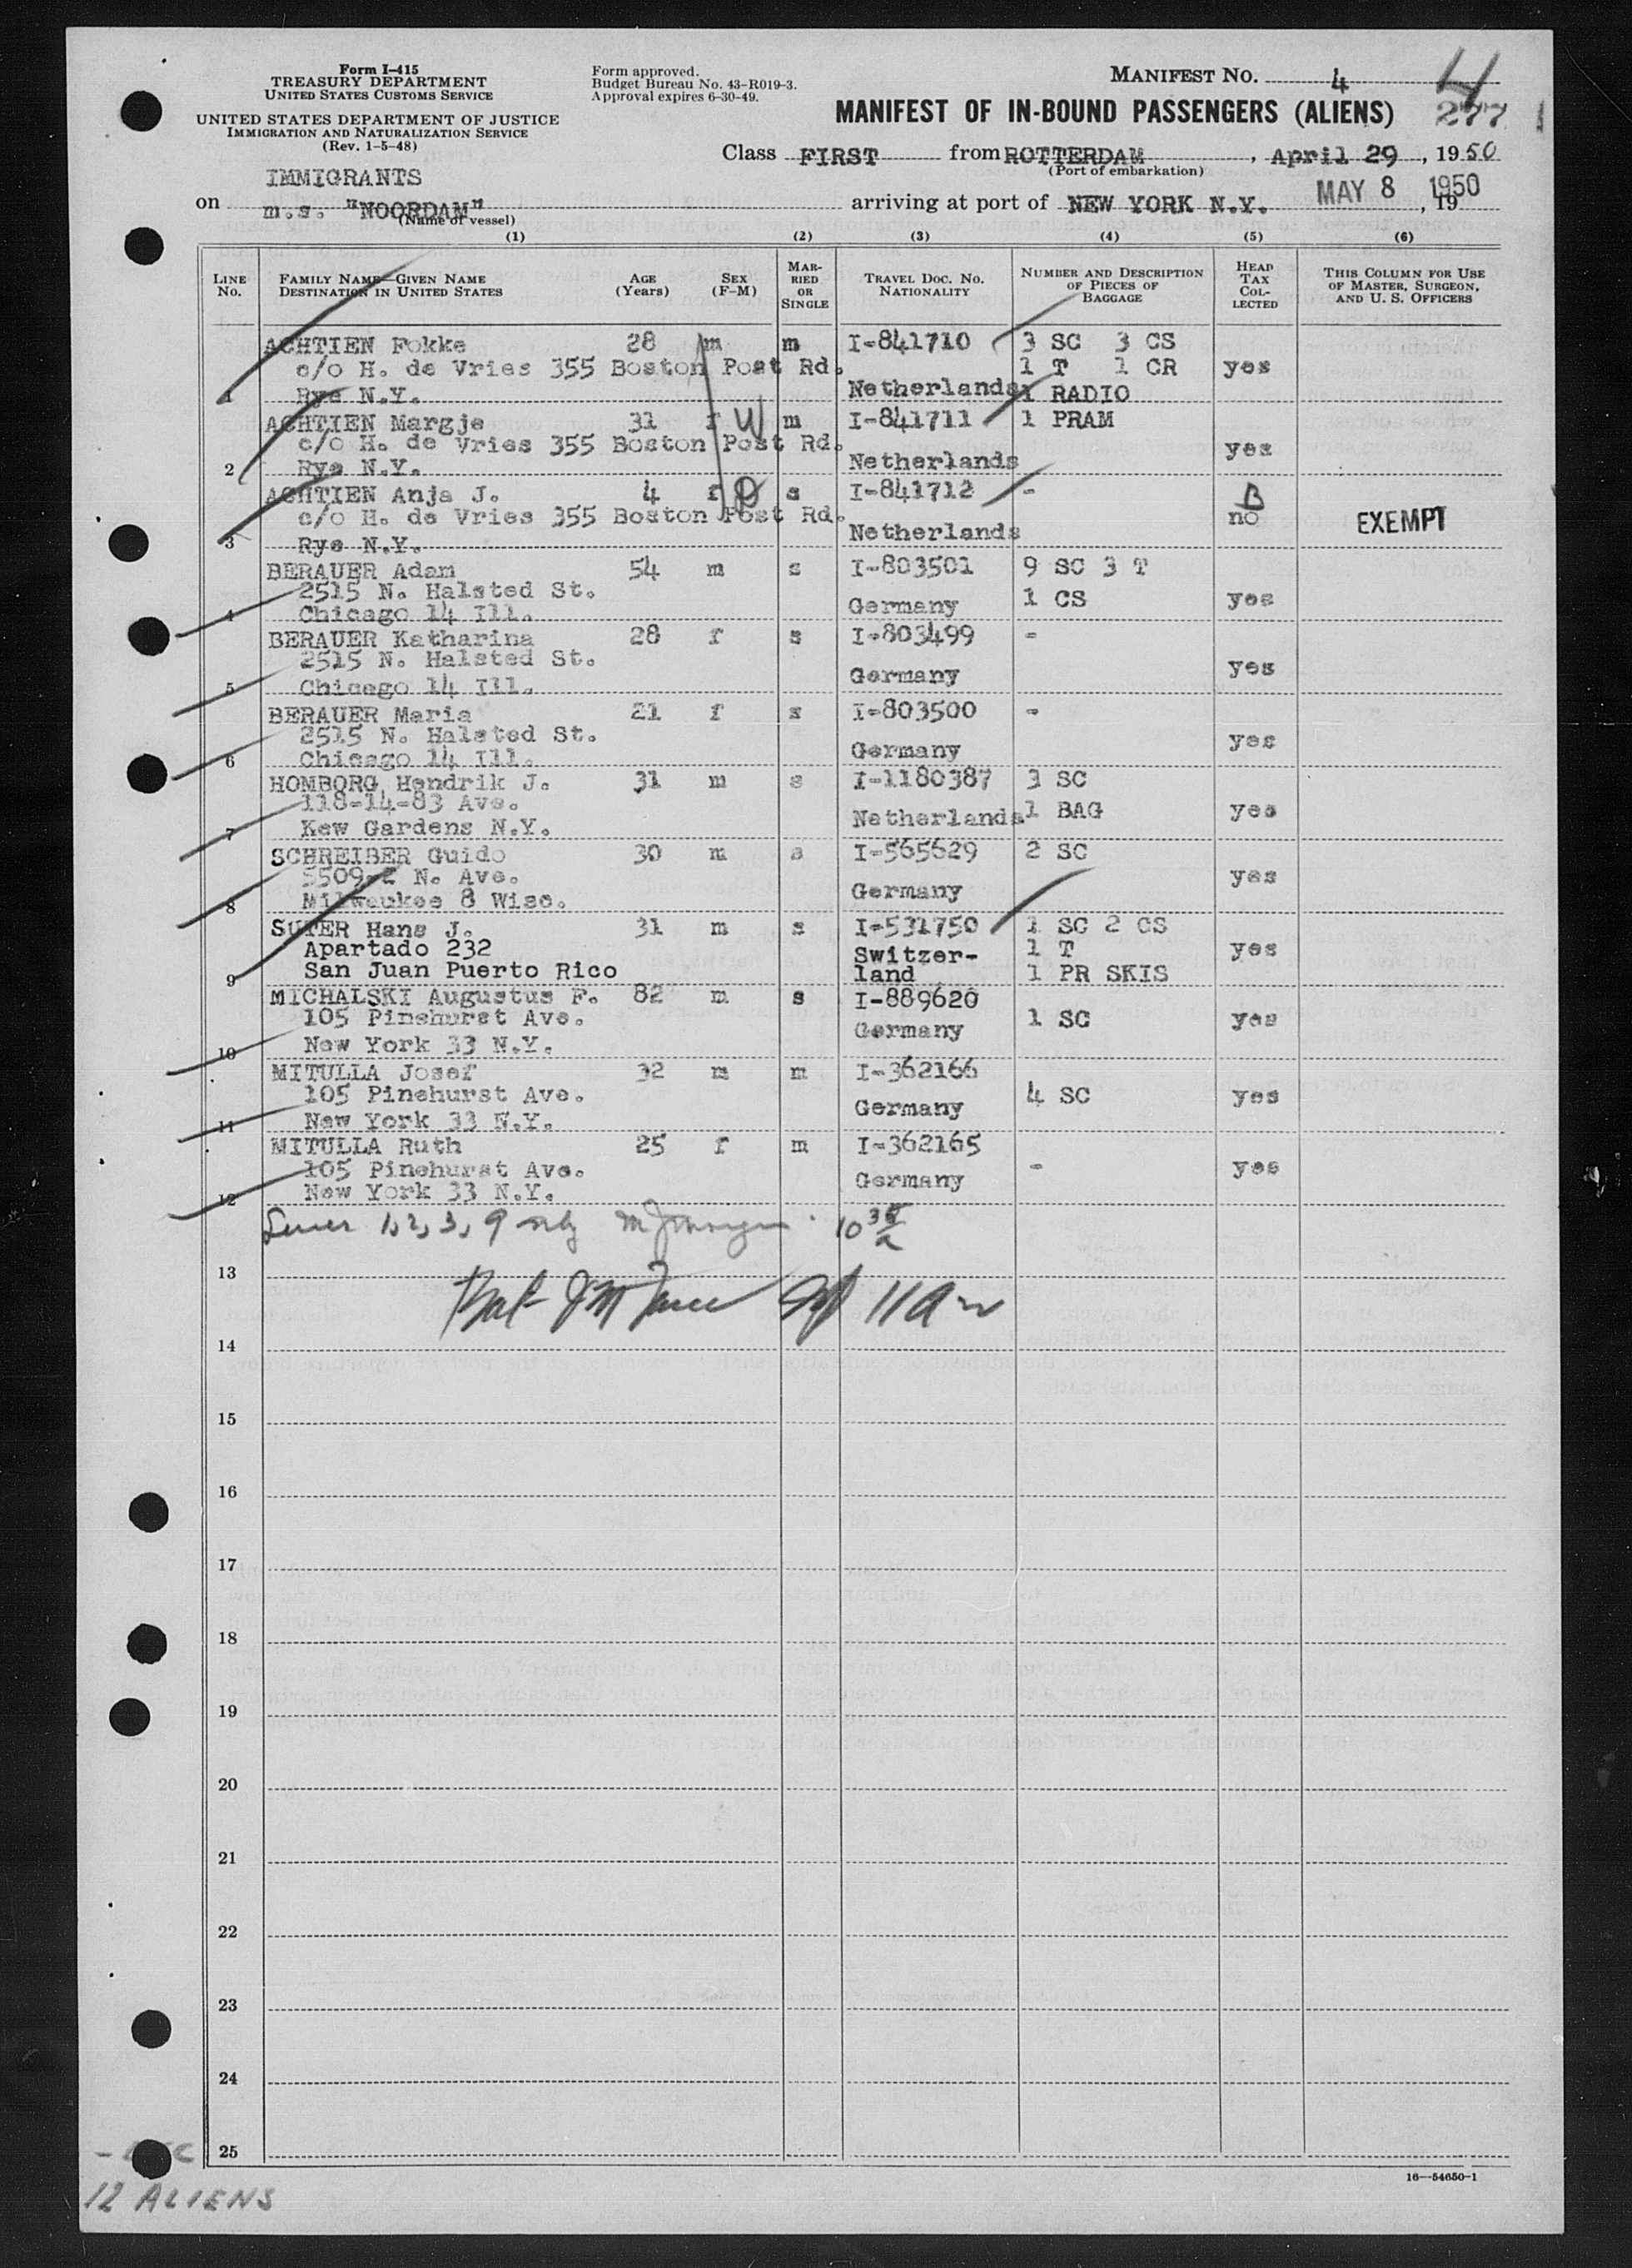 Form I-415
TREASURY DEPARTMENT
UNITED STATES CUSTOMS SERVICE
UNITED STATES DEPARTMENT OF JUSTICE
IMMIGRATION AND NATURALIZATION SERVICE
(Rev. 1-5-48)
Form approved.
Budget Bureau No. 43-R019-3.
Approval expires 6-30-49.
MANIFEST NO. 4
4
MANIFEST OF IN-BOUND PASSENGERS (ALIENS)
277 1
Class FIRST from ROTTERDAM, April 29, 1950
(Port of embarkation)
IMMIGRANTS
on m.s. "NOORDAM" arriving at port of NEW YORK N.Y. MAY 8 1950, 19
(Name of vessel)
(1) (2) (3) (4) (5) (6)
LINE No. FAMILY NAME—GIVEN NAME DESTINATION IN UNITED STATES AGE (Years) SEX (F-M) MARRIED OR SINGLE TRAVEL DOC. NO. NATIONALITY NUMBER AND DESCRIPTION OF PIECES OF BAGGAGE HEAD TAX COLLECTED THIS COLUMN FOR USE OF MASTER, SURGEON, AND U. S. OFFICERS
ACHTIEN Fokke 28 m m I-841710 3 SC 3 CS
c/o H. de Vries 355 Boston Post Rd. 1 T 1 CR yes
1 Rye N.Y. Netherlands 1 RADIO
ACHTIEN Margje 31 f W m I-841711 1 PRAM
c/o H. de Vries 355 Boston Post Rd. yes
2 Rye N.Y. Netherlands
ACHTIEN Anja J. 4 f D s I-841712 - B
c/o H. de Vries 355 Boston Post Rd. no EXEMPT
3 Rye N.Y. Netherlands
BERAUER Adam 54 m s I-803501 9 SC 3 T
2515 N. Halsted St. 1 CS yes
4 Chicago 14 Ill. Germany
BERAUER Katharina 28 f s I-803499 -
2515 N. Halsted St. yes
5 Chicago 14 Ill. Germany
BERAUER Maria 21 f s I-803500 -
2515 N. Halsted St. yes
6 Chicago 14 Ill. Germany
HOMBORG Hendrik J. 31 m s I-1180387 3 SC
118-14-83 Ave. Netherlands 1 BAG yes
7 Kew Gardens N.Y.
SCHREIBER Guido 30 m s I-565629 2 SC
N. Ave. yes
8 Milwaukee 8 Wisc. Germany
SUTER Hans J. 31 m s I-531750 1 SC 2 CS
Apartado 232 Switzer- 1 T yes
9 San Juan Puerto Rico land 1 PR SKIS
MICHALSKI Augustus F. 82 m s I-889620
105 Pinehurst Ave. Germany 1 SC yes
10 New York 33 N.Y.
MITULLA Josef 32 m m I-362166
105 Pinehurst Ave. Germany 4 SC yes
11 New York 33 N.Y.
MITULLA Ruth 25 f m I-362165
105 Pinehurst Ave. Germany - yes
12 New York 33 N.Y.
1, 2, 3, 9 only 10 35 a
13
11 am
14
15
16
17
18
19
20
21
22
23
24
25
16—54650-1
12 ALIENS